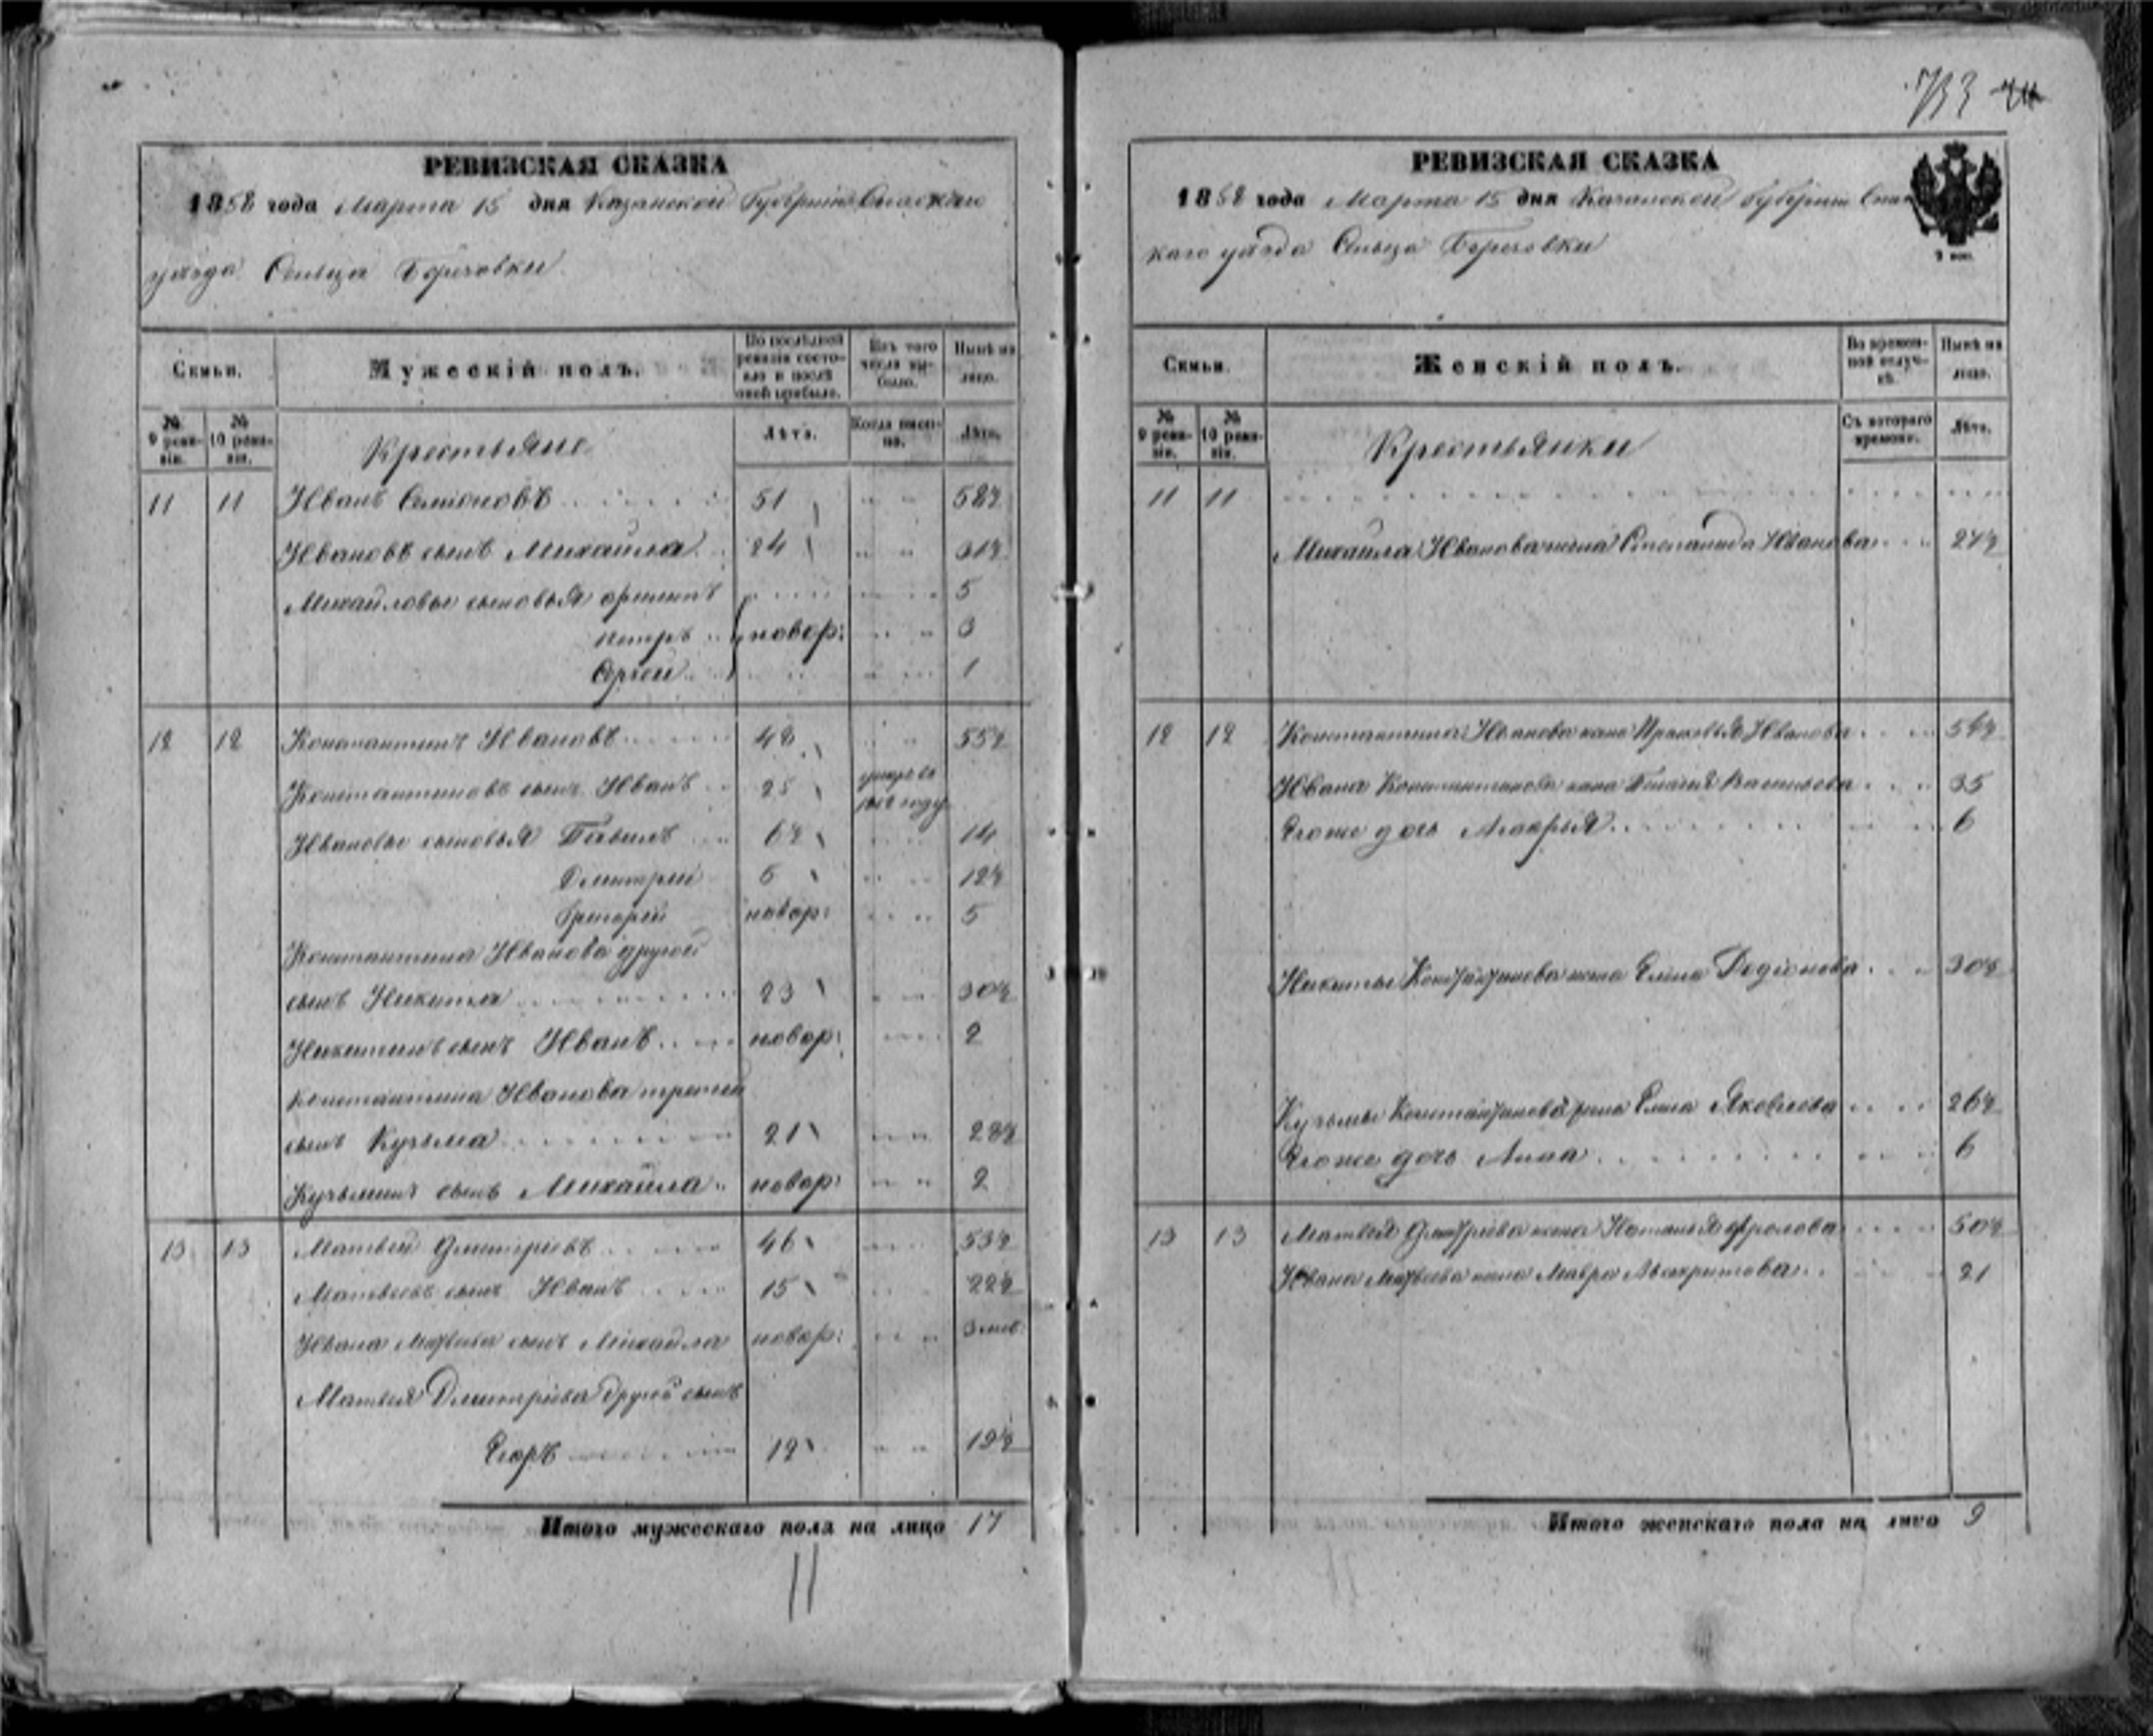 733
РЕВИЗСКАЯ СКАЗКА
1858 года Марта 15 дня Казанской Губернiи Спаскаго
уѣзда Сельца Березовки
Семьи.
Мужескiй полъ.
По послѣдней ревизiи состояло и послѣ оной прибыло.
Изъ того числа выбыло.
Нынѣ на лицо.
№ 9 ревизiи.
№ 10 ревизiи.
Крестьяне
Лѣта.
Когда именно.
Лѣта.
11 11 Иванъ Семеновъ 51 58½
Ивановъ сынъ Михайла 24 31½
Михайловы сыновья 5
Петръ новор: 3
Сергей 1
12 12 Константинъ Ивановъ 48 55½
Константиновъ сынъ Иванъ 25 умеръ въ году
Ивановы сыновья 6½ 14
Дмитрей 5 12½
Григорей новор: 5
Константина Иванова другой
сынъ Никита 23 30½
Никитинъ сынъ Иванъ новор: 2
Константина Иванова третей
сынъ Кузьма 21 28½
Кузьминъ сынъ Михайла новор: 2
13 13 Матвей Дмитрiевъ 46 53½
Матвеевъ сынъ Иванъ 15 22½
Ивана Матвеева сынъ Михайла новор: 3 мес.
Матвея Дмитрiева другой сынъ
Егоръ 12 19½
Итого мужескаго пола на лицо 17
11
РЕВИЗСКАЯ СКАЗКА
1858 года Марта 15 дня Казанской Губернiи Спас
каго уѣзда Сельца Березовки
Семьи.
Женскiй полъ.
Во временной отлучкѣ.
Нынѣ на лицо.
№ 9 ревизiи.
№ 10 ревизiи.
Крестьянки
Съ котораго времени.
Лѣта.
11 11
Михайла Иванова жена Степанида Иванова 27½
12 12 Константина Иванова жена Прасковья Иванова 54½
Ивана Константинова жена Васильева 35
Егоже дочь Марья 6
Никиты Константинова жена Елена Родiонова 30½
Кузьмы Константинова жена Елена Яковлева 26½
Егоже дочь Анна 6
13 13 Матвея Дмитрiева жена Наталья Фролова 50½
Ивана Матвеева жена Мавра 21
Итого женскаго пола на лицо 9